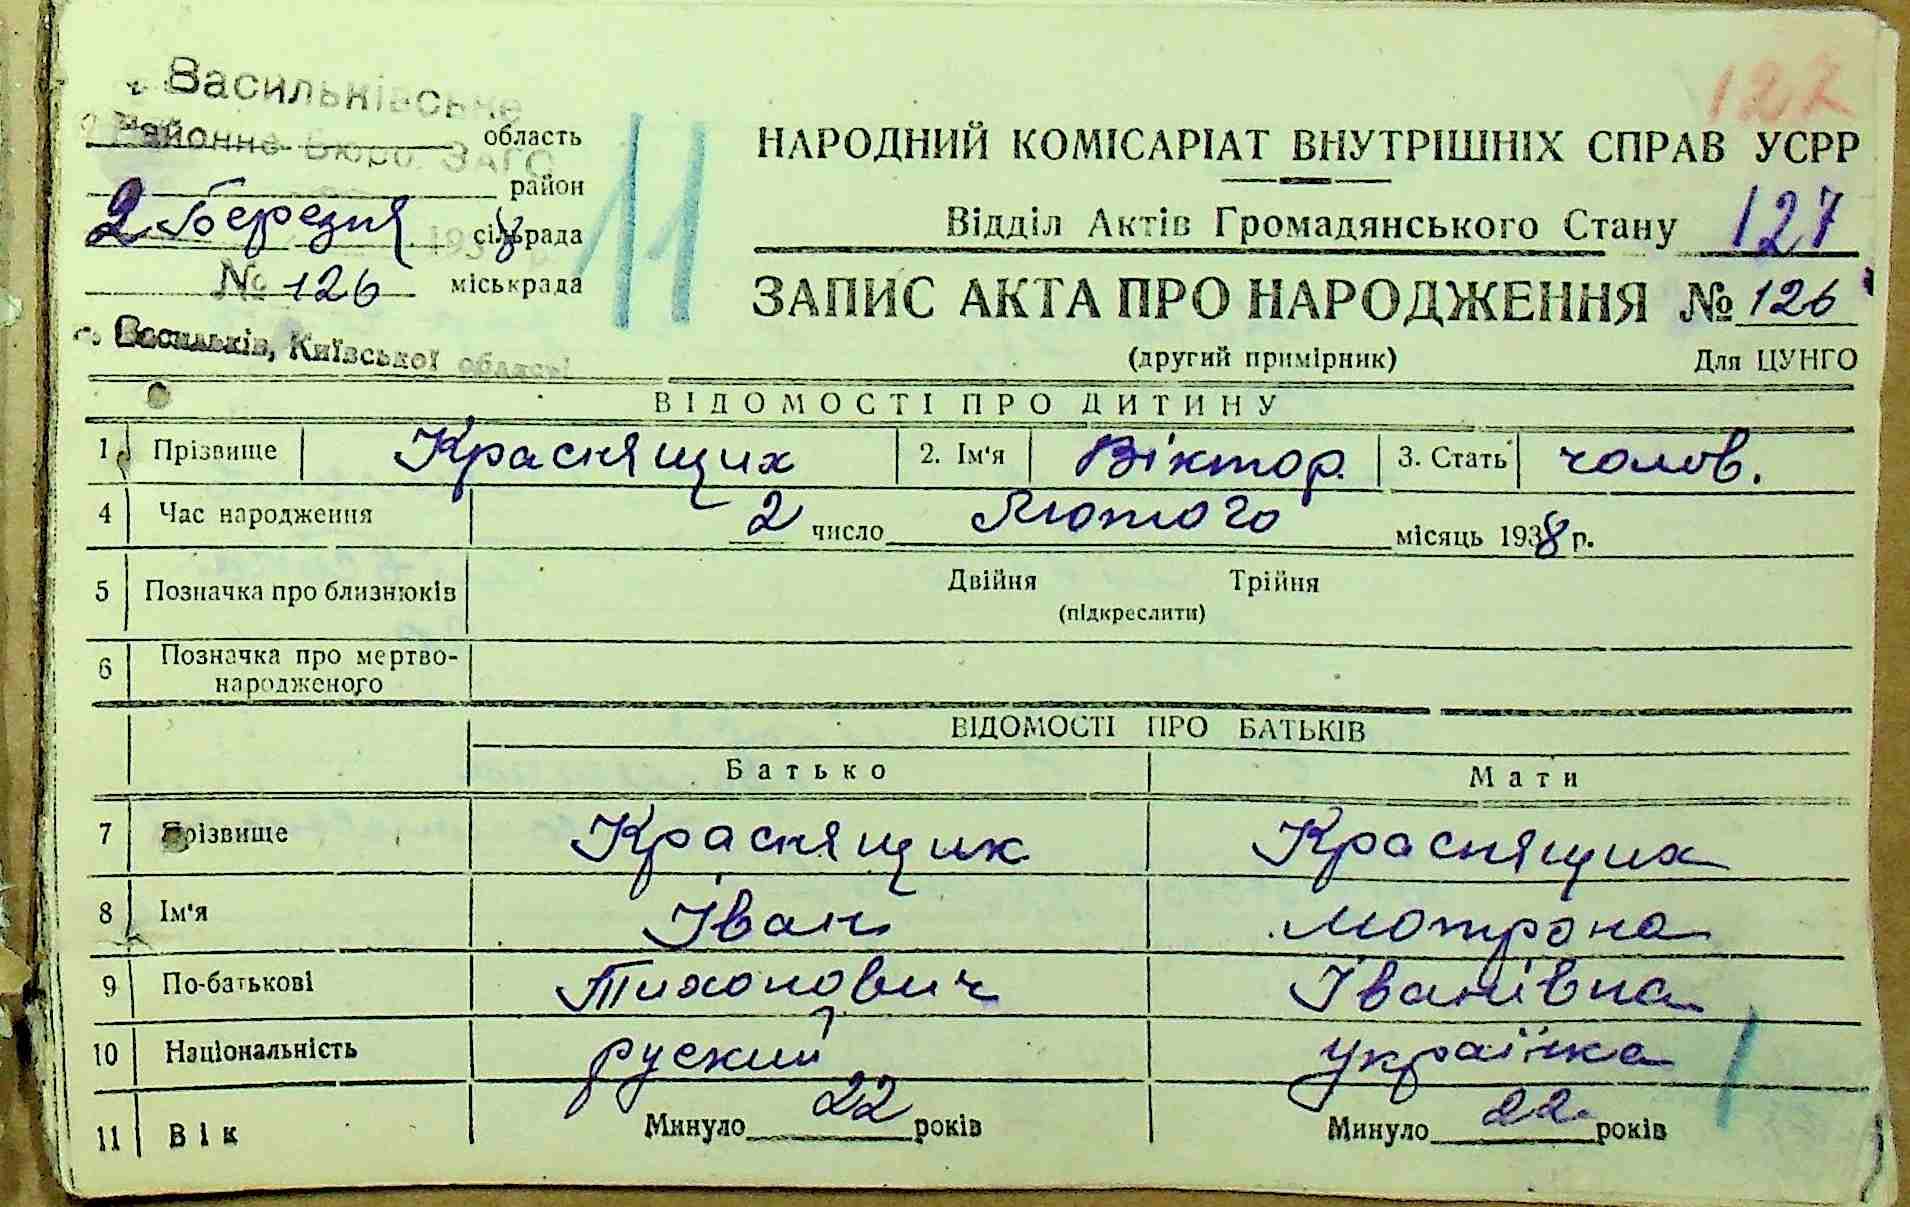 Васильківське
Районне Бюро ЗАГС
область
район
2 березня 1938 сільрада
№ 126 міськрада
м. Васильків, Київської області
11
127
НАРОДНИЙ КОМІСАРІАТ ВНУТРІШНІХ СПРАВ УСРР
Відділ Актів Громадянського Стану 127
ЗАПИС АКТА ПРО НАРОДЖЕННЯ № 126
(другий примірник) Для ЦУНГО
ВІДОМОСТІ ПРО ДИТИНУ
1 Прізвище Краснящих 2. Ім'я Віктор. 3. Стать чолов.
4 Час народження 2 число Лютого місяць 1938 р.
5 Позначка про близнюків Двійня Трійня
(підкреслити)
6 Позначка про мертво-
народженого
ВІДОМОСТІ ПРО БАТЬКІВ
Батько Мати
7 Прізвище Краснящих Краснящих
8 Ім'я Іван Мотрона
9 По-батькові Тихонович Іванівна
10 Національність руский українка
11 Вік Минуло 22 років Минуло 22 років